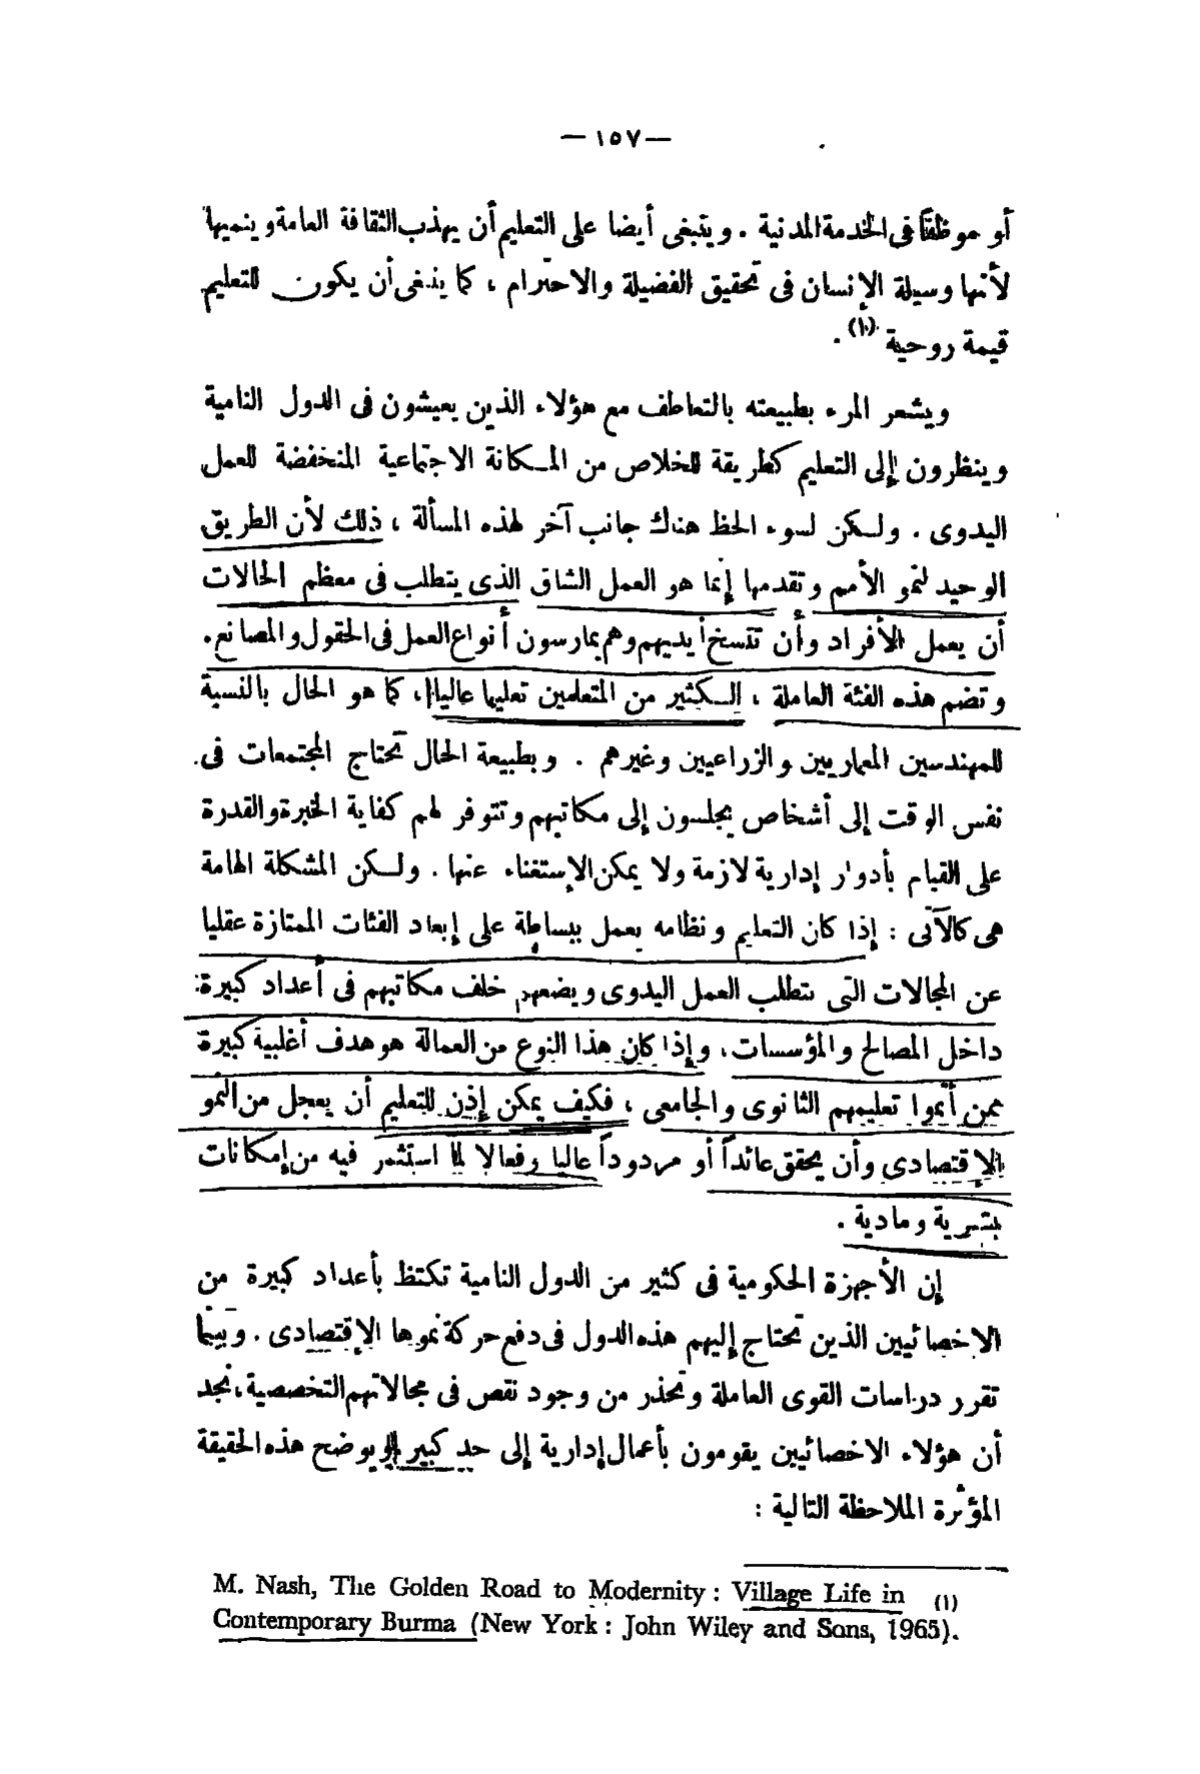 — ١٥٧ —
أو موظفاً فى الخدمة المدنية . وينبغى أيضا على التعليم أن يهذب الثقافة العامة وينميها
لأنها وسيلة الإنسان فى تحقيق الفضيلة والاحترام ، كما ينبغى أن يكون للتعليم
قيمة روحية (١) .
ويشعر المرء بطبيعته بالتعاطف مع هؤلاء الذين يعيشون فى الدول النامية
وينظرون إلى التعليم كطريقة للخلاص من المكانة الاجتماعية المنخفضة للعمل
اليدوى . ولكن لسوء الحظ هناك جانب آخر لهذه المسألة ، ذلك لأن الطريق
الوحيد لنمو الأمم وتقدمها إنما هو العمل الشاق الذى يتطلب فى معظم الحالات
أن يعمل الأفراد وأن تتسخ أيديهم وهم يمارسون أنواع العمل فى الحقول والمصانع .
وتضم هذه الفئة العاملة ، الكثير من المتعلمين تعليما عاليا ، كما هو الحال بالنسبة
للمهندسين المعماريين والزراعيين وغيرهم . وبطبيعة الحال تحتاج المجتمعات فى
نفس الوقت إلى أشخاص يجلسون إلى مكاتبهم وتتوفر لهم كفاية الخبرة والقدرة
على القيام بأدوار إدارية لازمة ولا يمكن الإستغناء عنها . ولكن المشكلة الهامة
هى كالآتى : إذا كان التعليم ونظامه يعمل ببساطة على إبعاد الفئات الممتازة عقليا
عن المجالات التى تتطلب العمل اليدوى ويضعهم خلف مكاتبهم فى أعداد كبيرة
داخل المصالح والمؤسسات ، وإذا كان هذا النوع من العمالة هو هدف أغلبية كبيرة
ممن أتموا تعليمهم الثانوى والجامعى ، فكيف يمكن إذن للتعليم أن يعجل من النمو
الإقتصادى وأن يحقق عائداً أو مردوداً عاليا وفعالا لما استثمر فيه من إمكانات
بشرية ومادية .
إن الأجهزة الحكومية فى كثير من الدول النامية تكتظ بأعداد كبيرة من
الاخصائيين الذين تحتاج إليهم هذه الدول فى دفع حركة نموها الإقتصادى . وبينما
تقرر دراسات القوى العاملة وتحذر من وجود نقص فى مجالاتهم التخصصية ، نجد
أن هؤلاء الاخصائيين يقومون بأعمال إدارية إلى حد كبير ويوضح هذه الحقيقة
المؤثرة الملاحظة التالية :
M. Nash, The Golden Road to Modernity : Village Life in (١)
Contemporary Burma (New York : John Wiley and Sons, 1965).